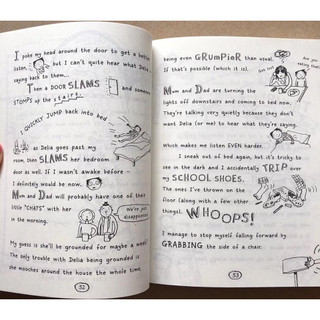 I poke my head around the door to get a better
listen, but I can't quite hear what Delia
saying back to them...
Then a DOOR SLAMS and someone
STOMPS up the stairs.
I QUICKLY JUMP back into bed
as Delia goes past my
room, then SLAMS her bedroom
door as well. If I wasn't awake before -
I definitely would be now.
Mum and Dad will probably have one of their
little "CHATS" with her
in the morning.
We're just
disappointed
My guess is she'll be grounded for maybe a week?
The only trouble with Delia being grounded is
she mooches around the house the whole time,
52
being even GRUMPIER than usual.
If that's possible (which it is).
Are you
eating that?
Mum and Dad are turning the
lights off downstairs and coming to bed now.
They're talking very quietly because they don't
want Delia (or me) to hear what they're saying.
Which makes me listen EVEN harder.
I sneak out of bed again, but it's tricky to
see in the dark and I accidentally TRIP over
my SCHOOL SHOES.
The ones I've thrown on the
floor (along with a few other
things). WHOOPS!
I manage to stop myself falling forward by
GRABBING the side of a chair.
53